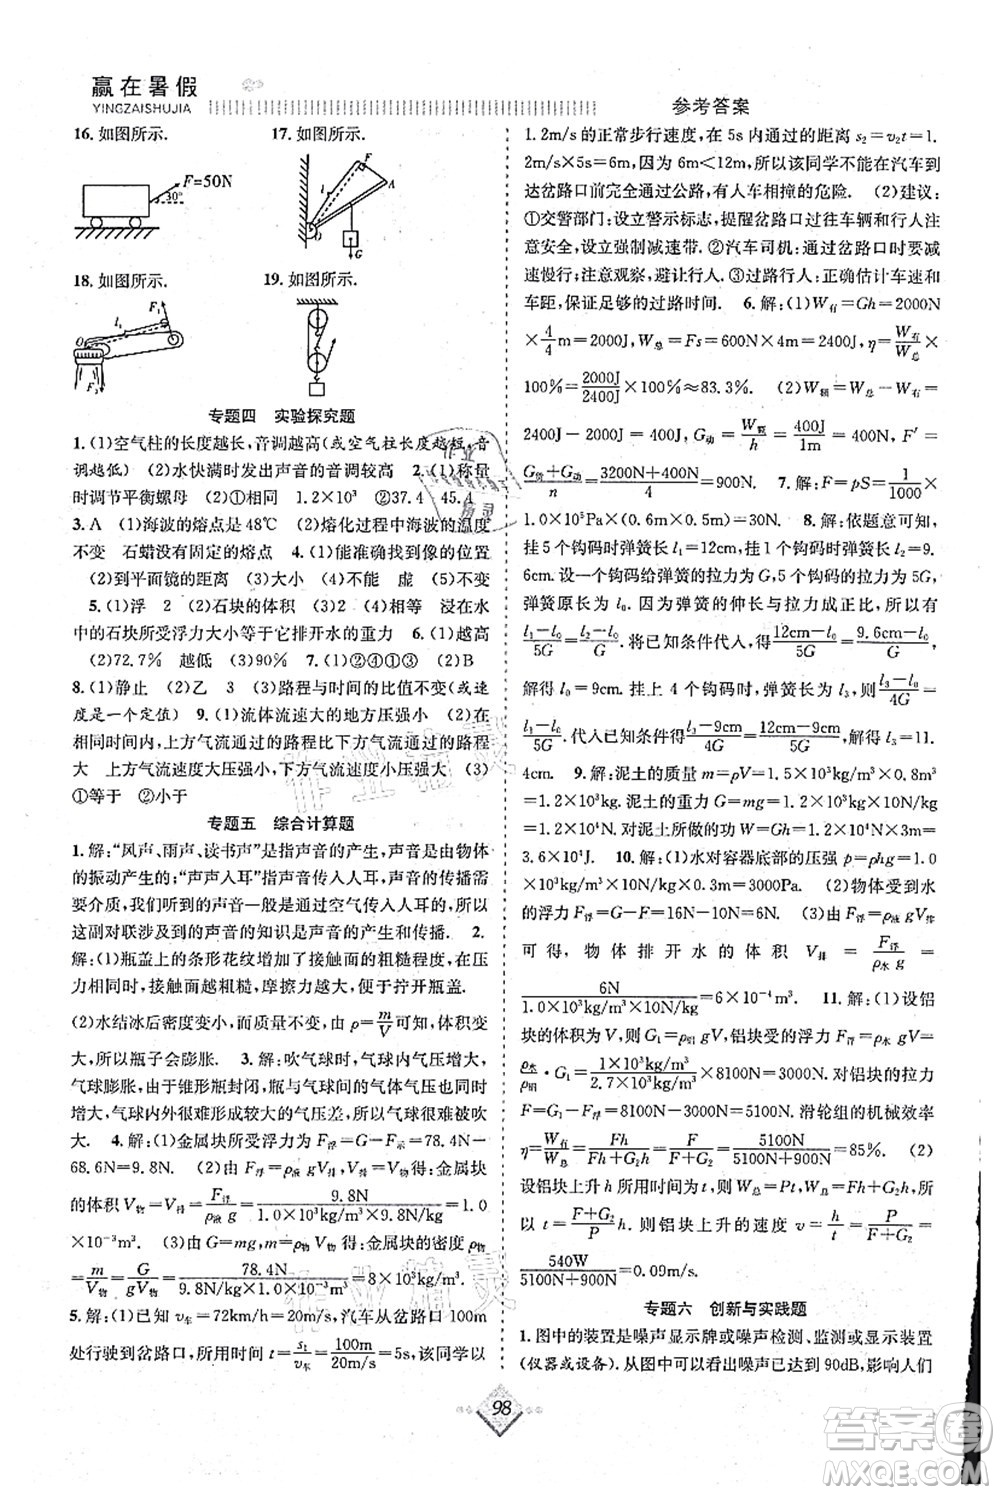 赢在暑假
YINGZAISHUJIA
参考答案
16. 如图所示.
17. 如图所示.
F=50N
30°
l
F
A
O
G
18. 如图所示.
19. 如图所示.
F₁
l₁
O
F₂
专题四 实验探究题
1. (1)空气柱的长度越长,音调越高(或空气柱长度越短,音
调越低) (2)水快满时发出声音的音调较高 2. (1)称量
时调节平衡螺母 (2)①相同 1.2×10³ ②37.4 45.4
3. A (1)海波的熔点是48℃ (2)熔化过程中海波的温度
不变 石蜡没有固定的熔点 4. (1)能准确找到像的位置
(2)到平面镜的距离 (3)大小 (4)不能 虚 (5)不变
5. (1)浮 2 (2)石块的体积 (3)相同 (4)相等 浸在水
中的石块所受浮力大小等于它排开水的重力 6. (1)越高
(2)72.7% 越低 (3)90% 7. (1)②④①③ (2)B
8. (1)静止 (2)乙 3 (3)路程与时间的比值不变(或速
度是一个定值) 9. (1)流体流速大的地方压强小 (2)在
相同时间内,上方气流通过的路程比下方气流通过的路程
大 上方气流速度大压强小,下方气流速度小压强大 (3)
①等于 ②小于
专题五 综合计算题
1. 解:“风声、雨声、读书声”是指声音的产生,声音是由物体
的振动产生的;“声声入耳”是指声音传入人耳,声音的传播需
要介质,我们听到的声音大多是通过空气传入人耳的.所以
这副对联涉及到声音的知识是声音的产生和传播. 2.
解:(1)瓶盖上的条形花纹增大了接触面的粗糙程度,在压
力相同时,接触面越粗糙,摩擦力越大,便于拧开瓶盖.
(2)水结冰后密度变小,而质量不变,根据ρ=m/V可知,体积变
大,所以瓶子会膨胀. 3. 解:吹气球时,气球内气压增大,
气球膨胀,由于锥形瓶封闭,瓶与气球间的气体气压也增
大,气球内外很难形成较大的气压差,所以气球很难被吹
大. 4. 解:(1)金属块所受浮力为F浮=G-F示=78.4N-
68.6N=9.8N. (2)由F浮=G排=ρ水gV排得:金属块
的体积V物=V排=F浮/ρ水g=9.8N/1.0×10³kg/m³×9.8N/kg=1.0
×10⁻³m³. (3)由G=mg、m=ρ物V物得:金属块的密度ρ物
=m/V物=G/gV物=78.4N/9.8N/kg×1.0×10⁻³m³=8.0×10³kg/m³.
5. 解:(1)已知v车=72km/h=20m/s,汽车从岔路口100m
处行驶到岔路口,所用时间t=s₁/v车=100m/20m/s=5s,该同学以
1.2m/s的正常步行速度,在5s内通过的距离s₂=v₂t=1.
2m/s×5s=6m. 因为6m<12m,所以该同学不能在汽车到
达岔路口前完全通过公路,有人车相撞的危险. (2)建议:
①交警部门:设立警示标志,提醒岔路口过往车辆和行人注
意安全,设立强制减速带. ②汽车司机:过岔路口时要减
速慢行;注意观察,避让行人. ③过路行人:正确估计车速和
车距,保证足够的过路时间. 6. 解:(1)W有=Gh=2000N
×4/4m=2000J,W总=Fs=600N×4m=2400J,η=W有/W总×
100%=2000J/2400J×100%≈83.3%. (2)W额=W总-W有=
2400J-2000J=400J,G动=W额/h=400J/1m=400N,F′=
G货+G动/n=3200N+400N/4=900N. 7. 解:F=pS=1/1000×
1.0×10⁵Pa×(0.6m×0.5m)=30N. 8. 解:依题意可知,
挂5个钩码时弹簧长l₁=12cm,挂4个钩码时弹簧长l₂=9.
6cm. 设一个钩码给弹簧的拉力为G,5个钩码的拉力为5G,
弹簧原长为l₀. 因为弹簧的伸长与拉力成正比,所以有
l₁-l₀/5G=l₂-l₀/4G. 将已知条件代入,得12cm-l₀/5G=9.6cm-l₀/4G,
解得l₀=9cm. 挂上4个钩码时,弹簧长为l₃,则应满足
l₁-l₀/5G=l₃-l₀/4G. 代入已知条件为12cm-9cm/5G=l₃-9cm/4G,解得l₃=11.
4cm. 9. 解:泥土的质量m=ρV=1.5×10³kg/m³×800m³=
1.2×10⁶kg,泥土的重力G=mg=1.2×10⁶kg×10N/kg
=1.2×10⁷N,对泥土所做的功W=Gh=1.2×10⁷N×3m=
3.6×10⁷J 10. 解:(1)水对容器底部的压强p=ρhg=1.0
×10³kg/m³×0.3m×10N/kg=3000Pa. (2)物体受到水
的浮力F浮=G-F=16N-10N=6N. (3)由F浮=ρ液gV排
可得,物体排开水的体积V排=F浮/ρ水g=
6N/1.0×10³kg/m³×10N/kg=6×10⁻⁴m³. 11. 解:(1)设铝
块的体积为V,则铝块重G₁=ρ铝gV,铝块受的浮力F浮=ρ水gV=
ρ水/ρ铝·G₁=1.0×10³kg/m³/2.7×10³kg/m³×8100N=3000N,对铝块的拉力
F=G₁-F浮=8100N-3000N=5100N. 滑轮组的机械效率
η=W有/W总=Fh/Fh+G₂h=F/F+G₂=5100N/5100N+900N=85%. (2)
设铝块上升h所用时间为t,则有W总=Pt,W总=Fh+G₂h,所
以t=F+G₂/P h,则铝块上升的速度v=h/t=P/F+G₂=
540W/5100N+900N=0.09m/s.
专题六 创新与实践题
1. 图中的装置是噪声显示牌或噪声检测、监测或显示装置
(仪器或设备). 从图中可以看出噪声已达到90dB,影响人们
98
作业精灵
答案圈
MXQE.COM